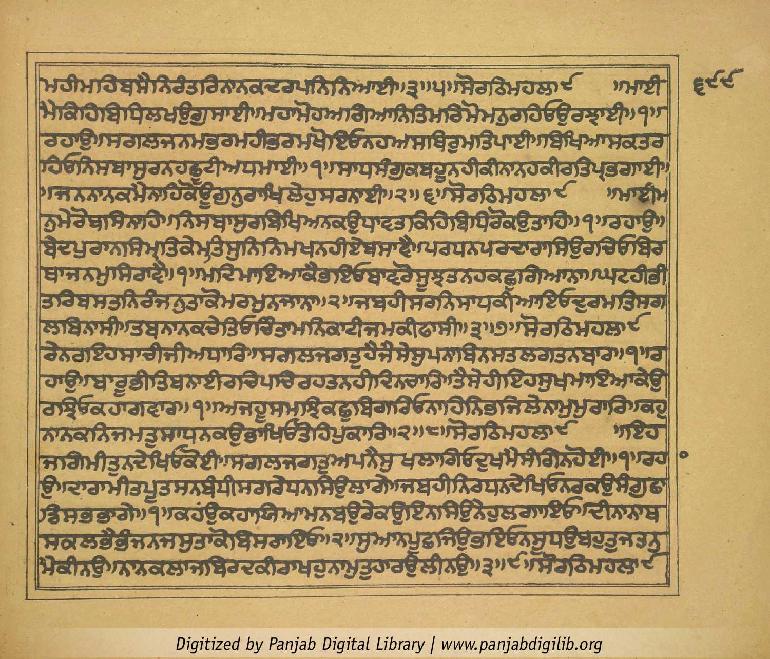 ਮਹੀਮਾਹਿਬਸੈਨਿਰੰਤਰਿਨਾਨਕਦਰਪਨਿਨਿਆਈ॥੩॥੫॥ਸੋਰਠਿਮਹਲਾ੯ ॥ਮਾਈ
ਮੈਕਿਹਿਬਿਧਿਲਖਉਗੁਸਾਈ॥ਮਹਾਮੋਹਅਗਿਆਨਿਤਿਮਰਿਮੋਮਨੁਰਹਿਓਉਰਝਾਈ॥੧॥
ਰਹਾਉ॥ਸਗਲਜਨਮਭਰਮਹੀਭਰਮਖੋਇਓਨਹਅਸਥਿਰੁਮਤਿਪਾਈ॥ਬਿਖਿਆਸਕਤਰ
ਹਿਓਨਿਸਬਾਸੁਰਨਹਛੂਟੀਅਧਮਾਈ॥੧॥ਸਾਧਸੰਗੁਕਬਹੂਨਹੀਕੀਨਾਨਹਕੀਰਤਿਪ੍ਰਭਗਾਈ
॥ਜਨਨਾਨਕਮੈਨਾਹਿਕੋਊਗੁਨੁਰਾਖਿਲੇਹੁਸਰਨਾਈ॥੨॥੬॥ਸੋਰਠਿਮਹਲਾ੯ ॥ਮਾਈਮ
ਨੁਮੇਰੋਬਸਿਨਾਹਿ॥ਨਿਸਬਾਸੁਰਬਿਖਿਅਨਕਉਧਾਵਤਕਿਹਿਬਿਧਿਰੋਕਉਤਾਹਿ॥੧॥ਰਹਾਉ॥
ਬੇਦਪੁਰਾਨਸਿਮ੍ਰਿਤਿਕੇਮਤਸੁਨਿਨਿਮਖਨਹੀਏਬਸਾਵੈ॥ਪਰਧਨਪਰਦਾਰਾਸਿਉਰਚਿਓਬਿਰ
ਥਾਜਨਮੁਸਿਰਾਵੈ॥੧॥ਮਦਿਮਾਇਆਕੈਭਇਓਬਾਵਰੋਸੂਝਤਨਹਕਛੁਗਿਆਨਾ॥ਘਟਹੀਭੀ
ਤਰਿਬਸਤਨਿਰੰਜਨੁਤਾਕੋਮਰਮੁਨਜਾਨਾ॥੨॥ਜਬਹੀਸਰਨਿਸਾਧਕੀਆਇਓਦੁਰਮਤਿਸਗ
ਲਬਿਨਾਸੀ॥ਤਬਨਾਨਕਚੇਤਿਓਚਿੰਤਾਮਨਿਕਾਟੀਜਮਕੀਫਾਸੀ॥੩॥੭॥ਸੋਰਠਿਮਹਲਾ੯
ਰੇਨਰਇਹਸਾਚੀਜੀਅਧਾਰਿ॥ਸਗਲਜਗਤੁਹੈਜੈਸੇਸੁਪਨਾਬਿਨਸਤਲਗਤਨਬਾਰ॥੧॥ਰ
ਹਾਉ॥ਬਾਰੂਭੀਤਿਬਨਾਈਰਚਿਪਚਿਰਹਤਨਹੀਦਿਨਚਾਰਿ॥ਤੈਸੇਹੀਇਹਸੁਖਮਾਇਆਕੇਉ
ਰਝਿਓਕਹਾਗਵਾਰ॥੧॥ਅਜਹੂਸਮਝਿਕਛੁਬਿਗਰਿਓਨਾਹਿਨਿਭਜਿਲੇਨਾਮੁਮੁਰਾਰਿ॥ਕਹੁ
ਨਾਨਕਨਿਜਮਤੁਸਾਧਨਕਉਭਾਖਿਓਤੋਹਿਪੁਕਾਰਿ॥੨॥੮॥ਸੋਰਠਿਮਹਲਾ੯ ॥ਇਹ
ਜਗਿਮੀਤੁਨਦੇਖਿਓਕੋਈ॥ਸਗਲਜਗਤੁਅਪਨੈਸੁਖਲਾਗਿਓਦੁਖਮੈਸੰਗਿਨਹੋਈ॥੧॥ਰਹ
ਉ॥ਦਾਰਾਮੀਤਪੂਤਸਨਬੰਧੀਸਗਰੇਧਨਸਿਉਲਾਗੇ॥ਜਬਹੀਨਿਰਧਨਦੇਖਿਓਨਰਕਉਸੰਗੁਛਾ
ਡਿਸਭਭਾਗੇ॥੧॥ਕਹਂਉਕਹਾਯਿਆਮਨਬਉਰੇਕਉਇਨਸਿਉਨੇਹੁਲਗਾਇਓ॥ਦੀਨਾਨਾਥ
ਸਕਲਭੈਭੰਜਨਜਸੁਤਾਕੋਬਿਸਰਾਇਓ॥੨॥ਸੁਆਨਪੂਛਜਿਉਭਇਓਨਸੂਧਉਬਹੁਤੁਜਤਨੁ
ਮੈਕੀਨਉ॥ਨਾਨਕਲਾਜਬਿਰਦਕੀਰਾਖਹੁਨਾਮੁਤੁਹਾਰਉਲੀਨਉ॥੩॥੯॥ਸੋਰਠਿਮਹਲਾ੯
੬੯੯
Digitized by Panjab Digital Library | www.panjabdigilib.org